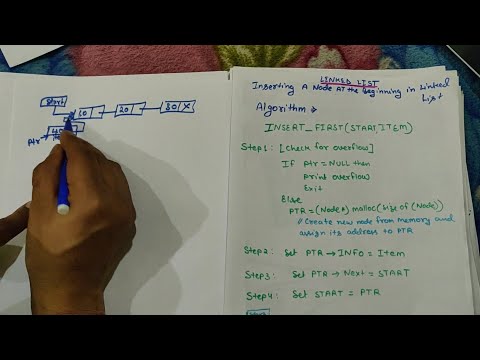 Start
10
20
30 X
Ptr
40
LINKED LIST
Inserting A Node AT the beginning in Linked
List
Algorithm
INSERT_FIRST(START, ITEM)
Step1: [Check for overflow]
If Ptr = NULL then
print overflow
Exit
Else
PTR = (Node*) malloc(size of (Node))
// Create new node from memory and
assign its address to PTR
Step2: Set PTR → INFO = Item
Step3: Set PTR → Next = START
Step4: Set START = PTR